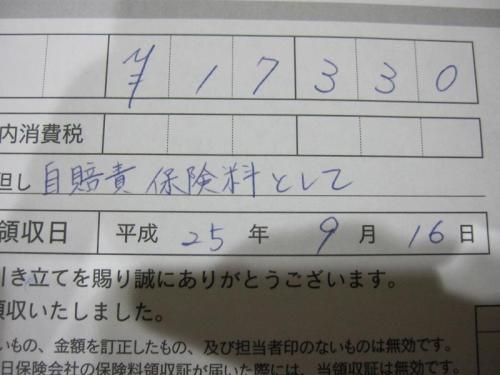 ¥17330
内消費税
但し 自賠責保険料として
領収日 平成 25 年 9 月 16 日
引き立てを賜り誠にありがとうございます。
領収いたしました。
いもの、金額を訂正したもの、及び担当者印のないものは無効です。
日保険会社の保険料領収証が届いた際には、当領収証は無効です。